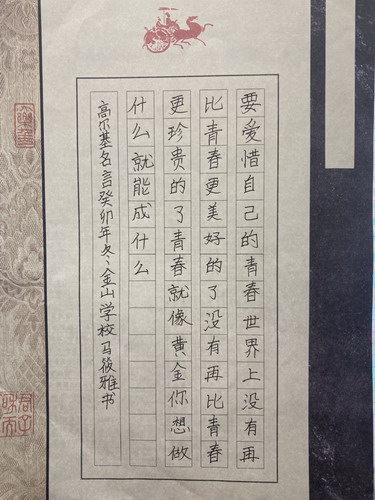 要爱惜自己的青春世界上没有再
比青春更美好的了没有再比青春
更珍贵的了青春就像黄金你想做
什么就能成什么
高尔基名言癸卯年冬金山学校马筱雅书